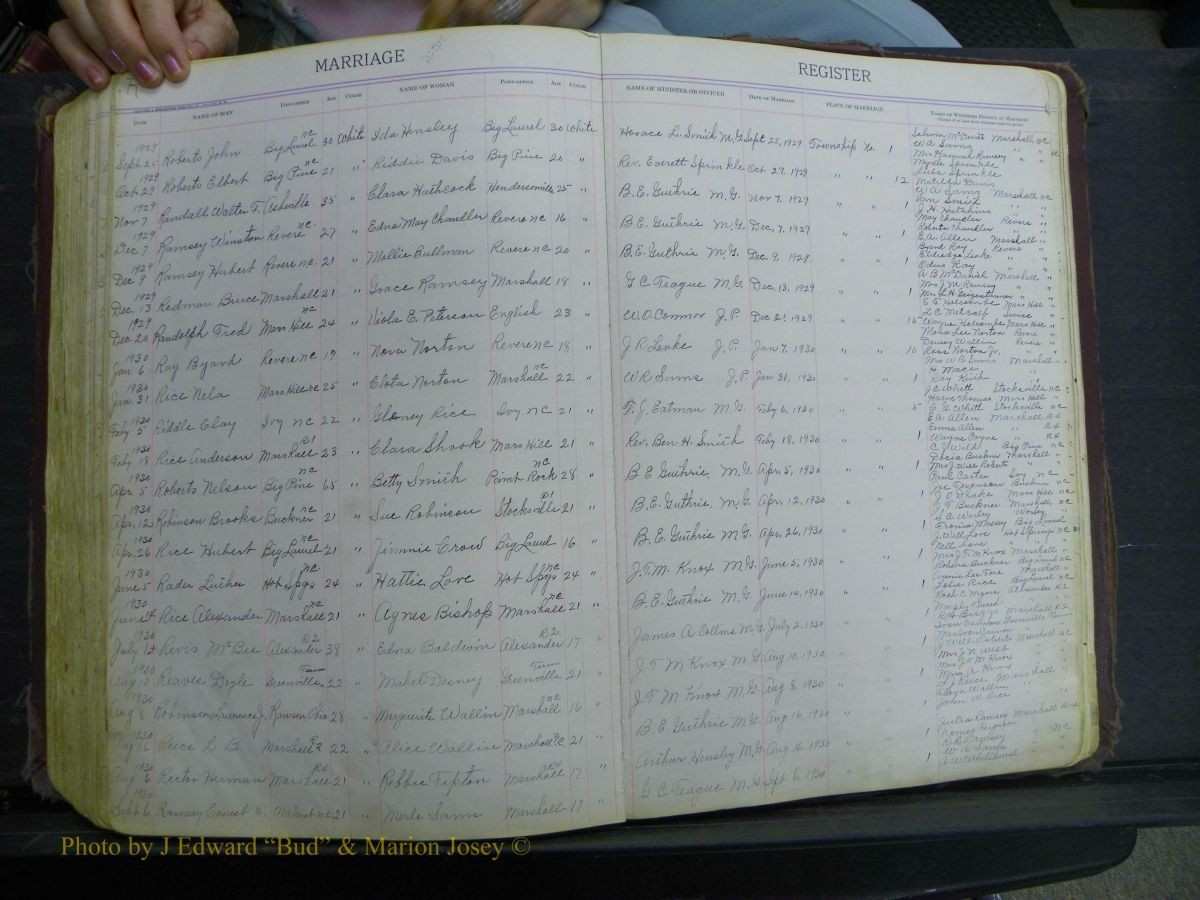 MARRIAGE
REGISTER
R
DATE NAME OF MAN POST-OFFICE AGE COLOR NAME OF WOMAN POST-OFFICE AGE COLOR NAME OF MINISTER OR OFFICER DATE OF MARRIAGE PLACE OF MARRIAGE NAMES OF WITNESSES PRESENT AT MARRIAGE
1929 Sept 25 Roberts John Big Laurel nc 30 White Ida Hensley Big Laurel 30 White Horace L. Smith M.G. Sept 25, 1929 Township No. 1
1929 Oct 29 Roberts Elbert Big Pine nc 21 " Davis Big Pine 20 " Rev. Everett Sprinkle Oct 29, 1929 " " 12
1929 Nov 7 Randall Walter F. Asheville 35 " Clara Huthcock Hendersonville 25 " B.E. Guthrie M.G. Nov 7, 1929 " " 1
1929 Dec 7 Ramsey Winston Revere nc 27 " Edna May Chandler Revere nc 16 " B.E. Guthrie M.G. Dec, 7, 1929 " " 1
1929 Dec 9 Ramsey Hubert Revere nc. 21 " Mollie Bullman Revere nc 20 " B.E. Guthrie M.G. Dec. 9, 1929 " " 1
1929 Dec. 13 Redman Bruce Marshall 21 " Grace Ramsey Marshall 18 " G C Teague M.G. Dec, 13, 1929 " " 1
1929 Dec 20 Randolph Fred Mars Hill nc 24 " Viola E. Peterson English 23 " W.O. Connor J.P. Dec 21, 1929 " " 15
1930 Jan 6 Ray Byard Revere nc 19 " Nova Norton Revere nc 18 " J R Leake J.P. Jan 7, 1930 " " 10
1930 Jan. 31 Rice Nela Mars Hill nc 25 " Clota Norton Marshall nc 22 " W R Sams J.P. Jan 31, 1930 " " 1
1930 Feby 5 Riddle Clay Ivy nc 22 " Rice Ivy nc 21 " T. J. Eatman M.G. Feby 6, 1930 " " 5
1930 Feby 18 Rice Anderson Marshall R1 23 " Clara Shook Mars Hill 21 " Rev. Ben H. Smith Feby 18, 1930 " " 1
1930 Apr. 5 Roberts Nelson Big Pine nc 65 " Betty Smith Paint Rock nc 28 " B E Guthrie M.G. Apr. 5, 1930 " " 1
1930 Apr. 12 Robinson Brooks Buckner nc 21 " Sue Robinson Stocksville R1 21 " B.E. Guthrie, M.G. Apr. 12, 1930 " " 1
1930 Apr. 26 Rice Hubert Big Laurel nc 21 " Jimmie Crow Big Laurel 16 " B.E. Guthrie M.G. Apr. 26, 1930 " "
1930 June 5 Rader Luther Hot Spgs nc 24 " Hattie Love Hot Spgs nc 24 " J.T.M. Knox M.G. June 5, 1930 " " 1
1930 June 14 Rice Alexander Marshall nc 21 " Agnes Bishop Marshall nc 21 " B.E. Guthrie M.G. June 14, 1930 " " 1
1930 July 12 Revis McBee Alexander R2 38 " Edna Baldwin Alexander R2 17 " James A Collins M.G. July 2, 1930 " " 1
1930 Aug 13 Reaves Doyle Greenville Tenn 22 " Mabel Disney Greenville Tenn 21 " J T M Knox M.G. Aug 10, 1930 " " 1
1930 Aug 8 Robinson Lawrence J. Rawson Ohio 28 " Marguerite Wallin Marshall nc 16 " J.T.M Knox M.G. Aug 8, 1930 " " 1
1930 Aug 16 Reece L B Marshall R2 22 " Alice Wallin Marshall nc 21 " B.E. Guthrie M.G. Aug 16, 1930 " " 1
1930 Aug 16 Rector Herman Marshall R4 21 " Robbie Tipton Marshall R4 17 " Arthur Hensley M.G. Aug 16, 1930 " " 1
1930 Sept 6 Ramsey Ernest E. Walnut nc 21 " Merle Sams Marshall 17 " G C Teague M.G. Sept 6, 1930 " " 1
W A Sams
Mrs Hannah Ramsey
Myrtle Sprinkle
Lula Sprinkle
Matilda Davis
W A Sams Marshall, nc
Van Smith
May Chandler Revere
Roberta Chandler
E.A. Allen Marshall
Byard Ray Revere
Odus Ray
A B McDaniel Marshall
Mrs J.M. Ramsey
L C Metcalf Swiss
Wayne Holcombe Mars Hill
Dewey Wallin Revere
Ross Norton Jr.
Mrs W R Sams Marshall
J C Whitt Stocksville nc
Harve Thomas Mars Hill
E. G. Whitt Stocksville nc
E.A. Allen Marshall R4
Emma Allen R4
Wayne Payne R4
Docia Buckner Marshall
Mrs J Will Roberts
Paul Carter
J T Buckner Marshall nc
S C Worley Worley
J. Will Love Hot Springs nc
Nell Love
Mrs J.T.M Knox Marshall
Lola Rice Big Laurel nc
J Will Roberts Marshall nc
Mrs J N West
Mrs J T M Knox
Mary A. Knox
Floyd Wallin
John W. Rice
Julia Ramsey Marshall R4
Romeo Ferguson
R R Ramsey
W A Sams nc
A W Whitehurst
Photo by J Edward “Bud” & Marion Josey ©